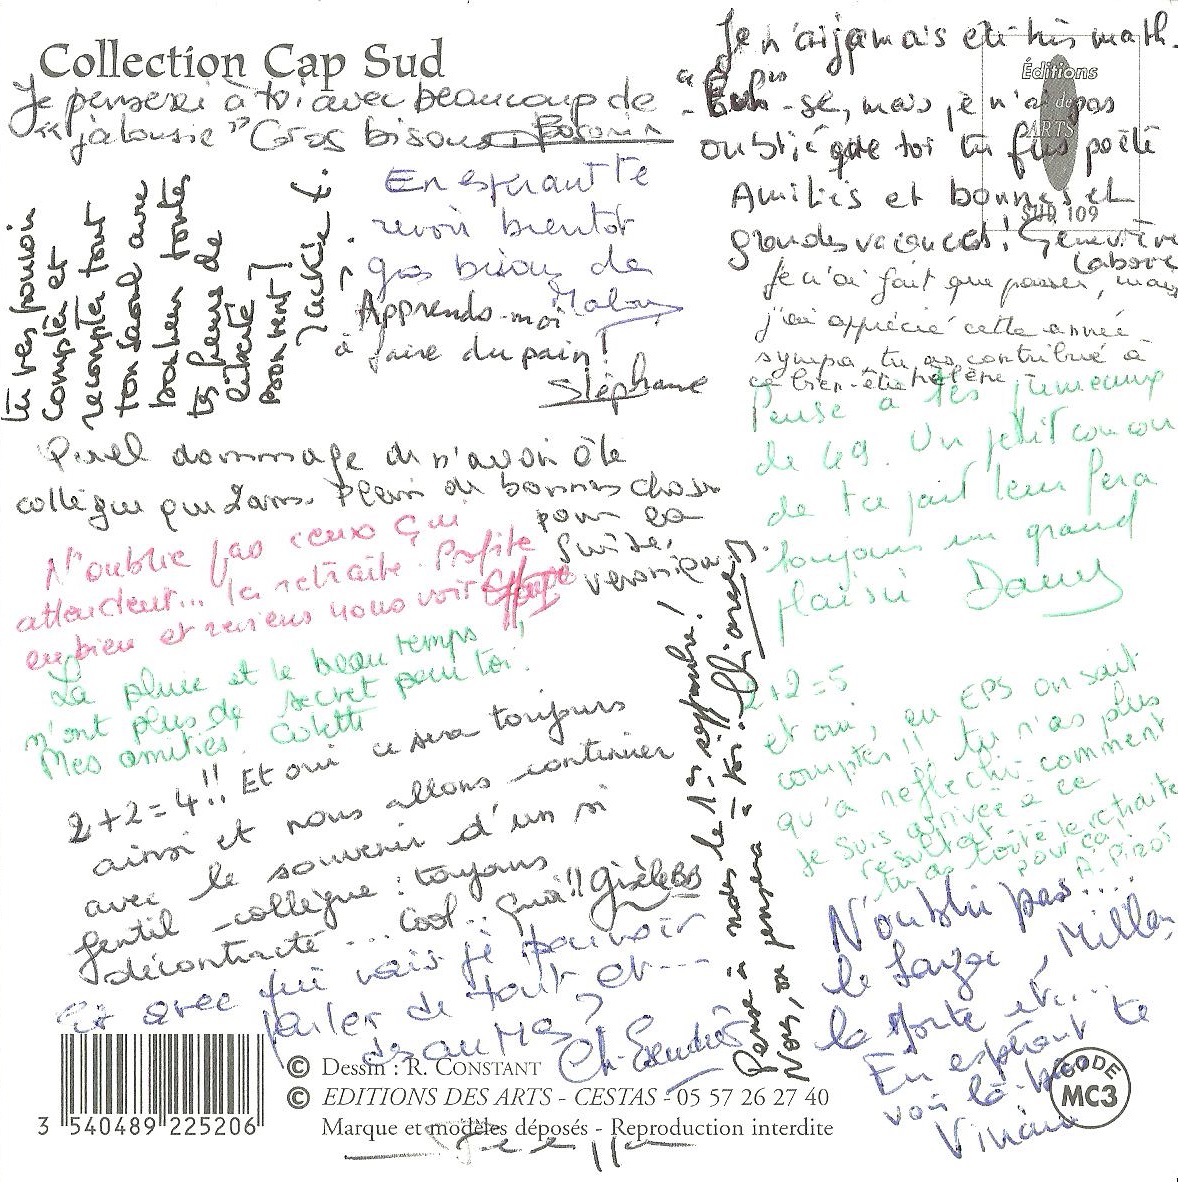 Collection Cap Sud
Je penserai à toi avec beaucoup de
"jalousie" Gros bisous
Je n'ai jamais été très math.
se, mais je n'ai pas
oublié que toi tu fus poète
Amitiés et bonnes et
grandes vacances! Geneviève
Laborie
Éditions
des
ARTS
SUD 109
En espérant te
revoir bientôt
gros bisous de
Malou
Apprends-moi
à faire du pain!
Stéphane
Tu vas pouvoir
compter et
recompter tout
ton saoul avec
bonheur toutes
tes heures de
liberté
Jackie
Je n'ai fait que passer, mais
j'ai apprécié cette année
sympa, tu as contribué à
ce bien-être Hélène
Pense à tes jumeaux
de 4g. Un petit coucou
de ta part leur fera
toujours un grand
plaisir Dany
Quel dommage de n'avoir été
collègue que 2 ans. Plein de bonnes choses
pour la
suite,
Véronique
N'oublie pas ceux qui
attendent... la retraite. Profite
en bien et reviens nous voir
La pluie et le beau temps
n'ont plus de secret pour toi!
Mes amitiés. Colette
2+2=4!! Et oui ce sera toujours
ainsi et nous allons continuer
avec le souvenir d'un si
gentil collègue: toujours
décontracté... Cool.. Quoi!! Gisèle BB
Pense à nous le 1er septembre!
Nous, on pensera à toi!
2+2=5
et oui, en EPS on sait
compter!! tu n'as plus
qu'à réfléchir comment
je suis arrivée à ce
résultat
tu as toute la retraite
pour ça!
A. Pizot
Et avec qui vais-je pouvoir
parler de tout et...
de au M9?
N'oublie pas....
le Larzac, Millau,
la Jonte etc...
En espérant te
voir là-bas
Viviane
3 540489 225206
© Dessin : R. CONSTANT
© EDITIONS DES ARTS - CESTAS - 05 57 26 27 40
Marque et modèles déposés - Reproduction interdite
CODE
MC3